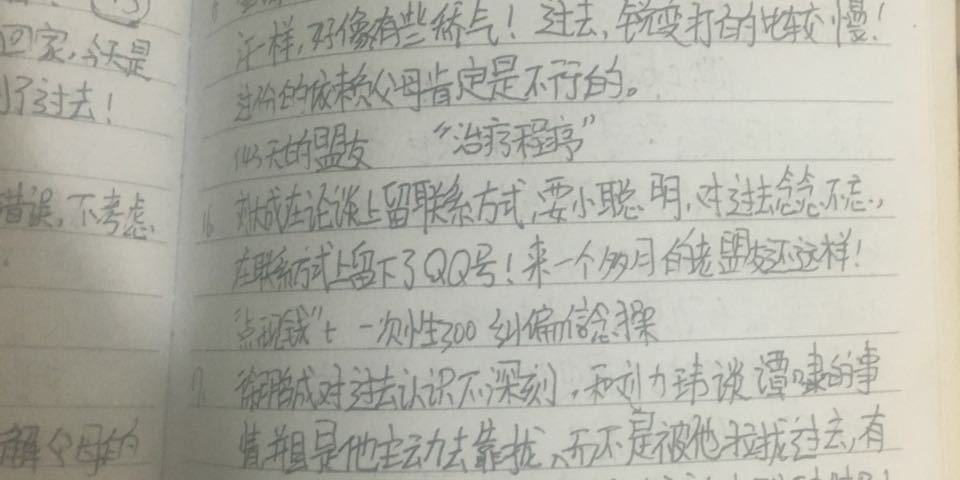 回家,今天是
过去!
错误,不考虑
解父母的
一样,好像有些娇气!过去,锐变打的比较慢!
过份的依赖父母肯定是不行的。
143天的盟友 “治疗程序”
16 成在论谈上留联系方式,耍小聪明,对过去念念不忘,
在联系方式上留下了QQ号!来一个多月的老盟友还这样!
“点现钱”+ 一次性300 纠偏信念操
17 成对过去认识不深刻,和刘力玮谈谭啸的事
情并且是他主动去靠拢、而不是被他拉拢过去,有